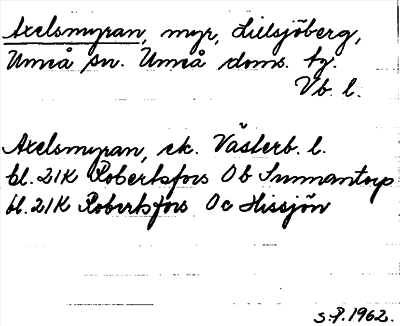 Axelsmyran, myr, Lillsjöberg,
Umeå sn. Umeå doms. tg.
Vb. l.
Axelsmyran, ek. Västerb. l.
bl. 21K Robertsfors 0b Innansjön
bl. 21K Robertsfors 0c Hissjön
S.P. 1962.